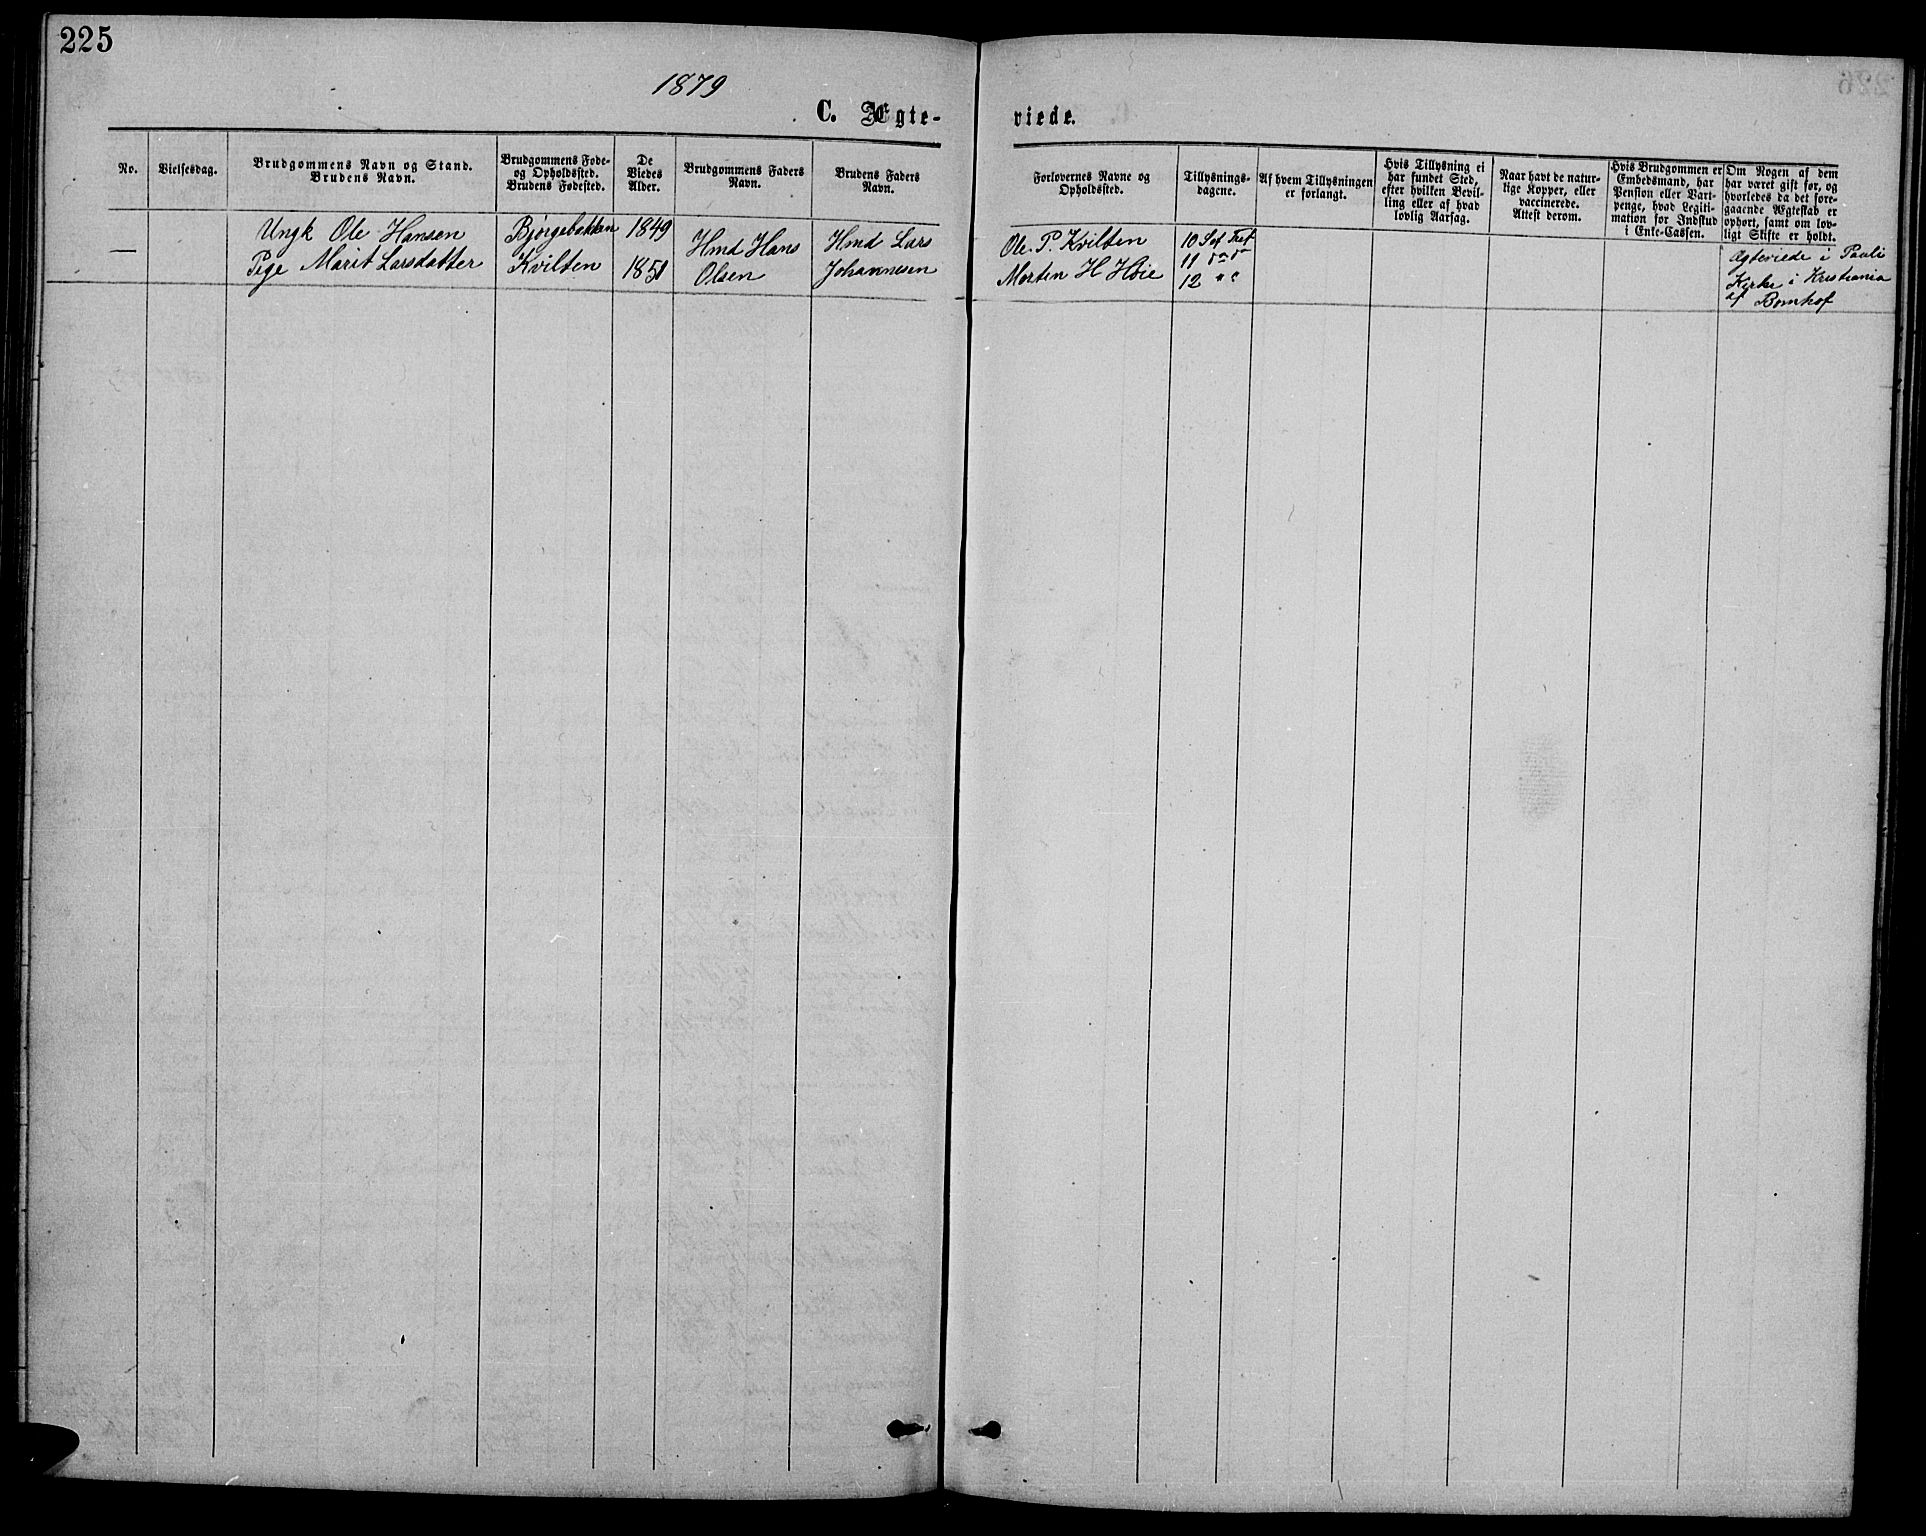 225
1879
C. Ægte-
viede.
No.
Vielsesdag.
Brudgommens Navn og Stand.
Brudens Navn.
Brudgommens Føde-
og Opholdssted.
Brudens Fødested.
De
Viedes
Alder.
Brudgommens Faders
Navn.
Brudens Faders
Navn.
Forlovernes Navne og
Opholdssted.
Tillysnings-
dagene.
Af hvem Tillysningen
er forlangt.
Hvis Tillysning ei
har fundet Sted,
efter hvilken Bevil-
ling eller af hvad
lovlig Aarsag.
Naar havt de natur-
lige Kopper, eller
vaccinerede.
Attest derom.
Hvis Brudgommen er
Embedsmand, har
Pension eller Vart-
penge, hvad Legiti-
mation for Indskud
i Enke-Cassen.
Om Nogen af dem
har været gift før, og
hvorledes da det fore-
gaaende Ægteskab er
ophørt, samt om lov-
ligt Skifte er holdt.
—
Ungk Ole Hansen
Pige Marit Larsdatter
Bjørgebakken
Kvilten
1849
1851
Hmd Hans
Olsen
Hmd Lars
Johannesen
Ole P. Kvilten
Morten H Høie
10 S ef Tref
11
12
Ægteviede i Pauli
Kirke i Kristiania
af Bomhof
226